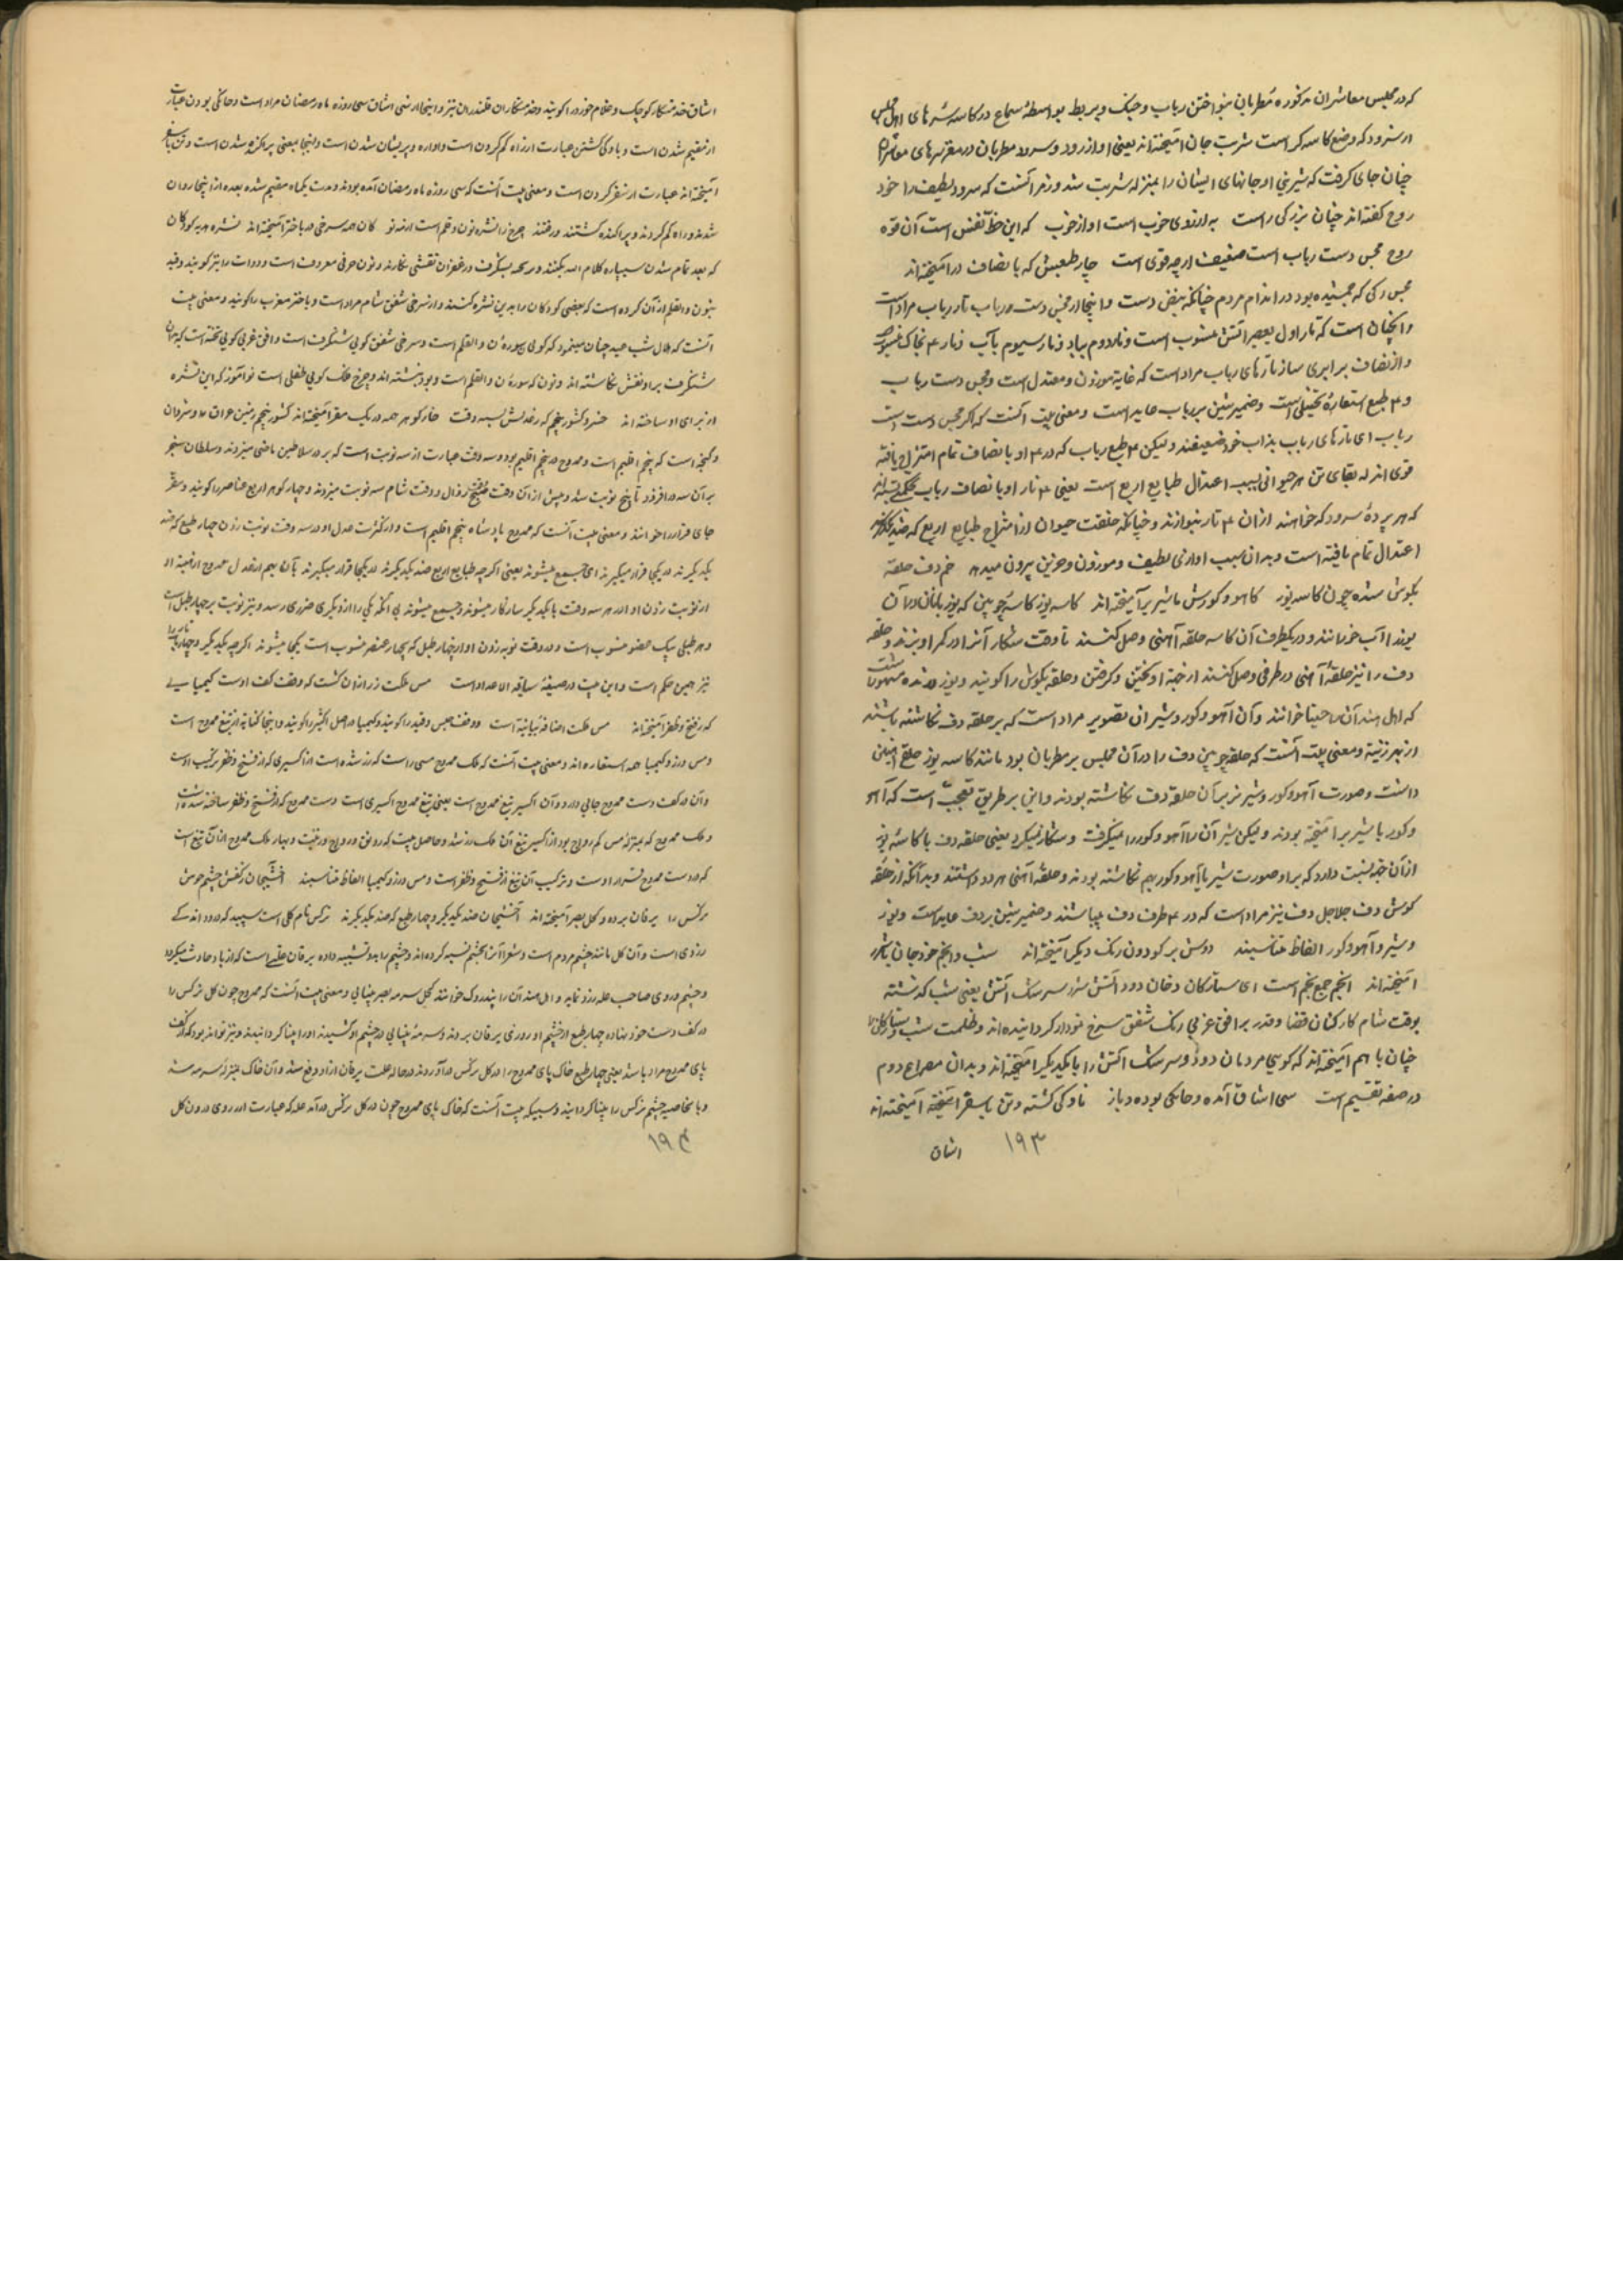 که در مجلس معاشران مذکوره مطربان بنواختن رباب و چنگ و بربط بواسطهٔ سماع در کاسه سرهای اهل مجلس
از سرود که وضع کاسه کر است شربت جان آمیخته‌اند یعنی اواز رود و سرود مطربان در مغز سرهای معاشران
چنان جای گرفت که شیرینی او جانهای ایشان را بمنزله شربت شد و زمرا آنست که سرود لطیف را خود
روح گفته‌اند چنان بزرگی راست به ارزوی خوب است اواز خوب که این حظ نفس است آن قوه
روح مجس دست رباب است ضعیف ارچه قوی است چار طبعش که بانصاف درآمیخته‌اند
مجس رگی که جهنده بود در اندام مردم چنانکه نبض دست و اینجا از مجس دست رباب تار رباب مراد است
و انچنان است که تار اول بعنصر آتش منسوب است و تار دوم بباد و تار سیوم بآب و تار ۴ بخاک منسوب
و از نصاف برابری ساز تارهای رباب مراد است که غایة موزون و معتدل است و مجس دست رباب
و ۴ طبع استعارهٔ تخییلی است و ضمیر شین بر رباب عاید است و معنی بیت آنست که اگر مجس دست است
رباب ای تارهای رباب بذاب خود ضعیفند و لیکن ۴ طبع رباب که در ۴ او بانصاف تمام امتزاج یافته
قوی اند له بقای تن هر حیوانی بسبب اعتدال طبایع اربع است یعنی ۴ تار او بانصاف رباب محکم بسته‌اند
که هر پردهٔ سرود که خواهند ازان ۴ تار بنوازند و چنانکه خلقت حیوان از امتزاج طبایع اربع که ضد یکدیگرند
اعتدال تمام یافته است و بدان سبب اوازی لطیف و موزون و حزین بیرون میدهد خم دف حلقه
بگوش شده چون کاسه یوز کاهو و گورش با شیر برآمیخته‌اند کاسه یوز کاسهٔ چوبین که یوز بانان دران
یوز را آب خورانند و در یکطرف آن کاسه حلقه آهنی وصل کنند تا وقت شکار آنرا در کمر اویزند و حلقه
دف را نیز حلقهٔ آهنی در طرفی وصل کنند از جهة اویختن و گرفتن و حلقه بگوش را گویند و یوز درنده مشهور است
که اهل هند آن را چیتا خوانند و آن آهو و گور و شیر ان تصویر مراد است که بر حلقه دف نگاشته باشند
از بهر زینة و معنی بیت آنست که حلقه چوبین دف را در آن مجلس بر مطربان بود مانند کاسه یوز حلقه آهنین
داشت و صورت آهو و گور و شیر نر بر آن حلقه دف نگاشته بودند و این بر طریق تعجب است که آهو
و گور با شیر برآمیخته بودند و لیکن شیر آن را آهو و گور را نمیگرفت و شکار نمیکرد یعنی حلقه دف با کاسهٔ یوز
ازان جهة نسبت دارد که براو صورت شیر با آهو و گور بهم نگاشته بودند و حلقه آهنی هر دو داشتند و بدانکه از حلقه
گوش دف جلاجل دف نیز مراد است که در ۴ طرف دف میباشند و ضمیر شین بر دف عاید است و یوز
و شیر و آهو و گور الفاظ متناسبند دوش بر گودون رنگ دیگر آمیخته‌اند شب و انجم خود جان
آمیخته‌اند انجم جمع نجم است ای ستارگان دخان دود آتش شرر سرشک آتش یعنی شب گذشته
بوقت شام کارکنان قضا و قدر بر افق غربی رنگ شفق سرخ نمودار گردانیده‌اند و ظلمت شب و ستارگان را
چنان با هم آمیخته‌اند که گویی مردمان دود و سرشک آتش را با یکدیگر آمیخته‌اند و بدان مصراع دوم
در صفه تقسیم است سی اشاق آمده و خانگی بوده و باز ناوکی گشته و تن با سقر آمیخته آمیخته‌اند
۱۹۳
اشاق
اشاق خدمتکار کوچک و غلام خورد را گویند و خدمتکاران قلندران نیز و اینجا از سی اشاق سی روزه ماه رمضان مراد است و خانگی بودن عبارت
از مقیم شدن است و یاوگی گشتن عبارت از راه گم کردن است و اواره و پریشان شدن است و اینجا بمعنی پراکنده شدن است و تن با سفر
آمیخته‌اند عبارت از سفر کردن است و معنی بیت آنست که سی روزه ماه رمضان آمده بودند و مدت یکماه مقیم شده بعده از اینجا روان
شدند و راه گم کردند و پراکنده گشتند و رفتند چرخ را نشره نون و قلم است از مه نو کان همه سرخی در باختر آمیخته‌اند نشره هدیه کودکان
که بعد تمام شدن سیپاره کلام الله بکنند و بر تخته بشنگرف و زعفران نقشی نگارند و نون حرفی معروف است و دوات را نیز گویند و قید
بنون والقلم ازان کرده است که بعضی کودکان را بدین نشره کنند و از سرخی شفق شام مراد است و باختر مغرب را گویند و معنی بیت
آنست که هلال شب عید چنان مینمود که گوی سوره ن والقلم است و سرخی شفق گویی شنگرف است و افق غربی گویی تخته است که بدان
شنگرف براو نقش نگاشته‌اند و نون که سوره ن والقلم است و بود نبشته‌اند و چرخ فلک گویی طفلی است نوآموز که این نشره
از برای او ساخته‌اند خسرو کشور پنجم که رعدلش بسه وقت چار گوهر همه در یک مقر آمیخته‌اند کشور پنجم زمین عراق و شروان
و گنجه است که پنجم اقلیم است و ممدوح در پنجم اقلیم بود و سه وقت عبارت از سه نوبت است که بر در سلاطین ماضی میزدند و سلطان سنجر
بر آن سه در افزود تا پنج نوبت شد و پیش ازان وقت صبح و وقت زوال و وقت شام سه نوبت میزدند و چهار گوهر اربع عناصر را گویند و مقر
جای قرار را خوانند و معنی بیت آنست که ممدوح پادشاه پنجم اقلیم است و از کثرت عدل او در سه وقت نوبت زدن چهار طبع که ضد
یکدیگرند در یکجا قرار میگیرند ای جمع میشوند یعنی اگرچه طبایع اربع ضد یکدیگرند در یکجا قرار میگیرند
از نوبت زدن او اندر هر سه وقت با یکدیگر سازگار میشوند و جمیع میشوند بی آنکه یکی را از دیگری ضرری رسد و نیز نوبت بر چهار طبل است
و هر طبلی بیک عنصر منسوب است و در وقت نوبه زدن اواز چهار طبل که بچهار عنصر منسوب است یکجا میشوند اگرچه یکدیگر
نیز همین حکم است و این بیت در صیغهٔ سیاقه الاعداد است مس ملکت زر ازان گشت که وقف کف اوست کیمیایی
که ز فتح و ظفر آمیخته‌اند مس ملکت اضافه بیانیه است و وقف حبس و قید را گویند و کیمیا در اصل اکسیر را گویند و اینجا کنایه از تیغ ممدوح است
و مس و زر و کیمیا همه استعاره‌اند و معنی بیت آنست که ملک ممدوح مسی راست که زر شده است از اکسیری که از فتح و ظفر ترکیب اوست
و آن در کف دست ممدوح جایی دارد و آن اکسیر تیغ ممدوح است یعنی تیغ ممدوح اکسیری است دست ممدوح که از فتح و ظفر ساخته شده
و ملک ممدوح که بمنزلهٔ مس کم رواج بود از اکسیر تیغ آن ملک زر شد و حاصل بیت که رونق و رواج و زینت و بهار ملک ممدوح ازان تیغ است
که در دست ممدوح قرار اوست و ترکیب آن تیغ از فتح و ظفر است و مس و زر و کیمیا الفاظ متناسبند آخشیجان ز کفش چشم خوش
نرگس را یرقان برده و کحل بصر آمیخته‌اند آخشیجان ضد یکدیگر و چهار طبع که ضد یکدیگرند نرگس نام گلی است سپید که در او اندکی
زردی است و آن گل مانند چشم مردم است و شعرا آنرا بچشم نسبه کرده‌اند و چشم را بدو تشبیه داده یرقان علتی است که از باد حادث میگردد
و چشم و روی صاحب علت زرد نماید و اهل هند آن را پندروک خوانند کحل سرمه بصر بینایی و معنی بیت آنست که ممدوح چون گل نرگس را
در کف دست خود بنهاد چهار طبع از چشم او زردی یرقان بردند و سرمهٔ بینایی در چشم او کشیدند او را بینا گردانیدند و نیز تواند بود که از کف
پای ممدوح مراد باشد یعنی چهار طبع خاک پای ممدوح را در گل نرگس درآوردند در حال علت یرقان ازاو دفع شد و آن خاک بمنزله سرمه شد
و بالخاصیه چشم نرگس را بینا گردانید و سببیکه بیت آنست که خاک پای ممدوح چون در گل نرگس درآمد علت که عبارت از زردی درون گل
۱۹۴